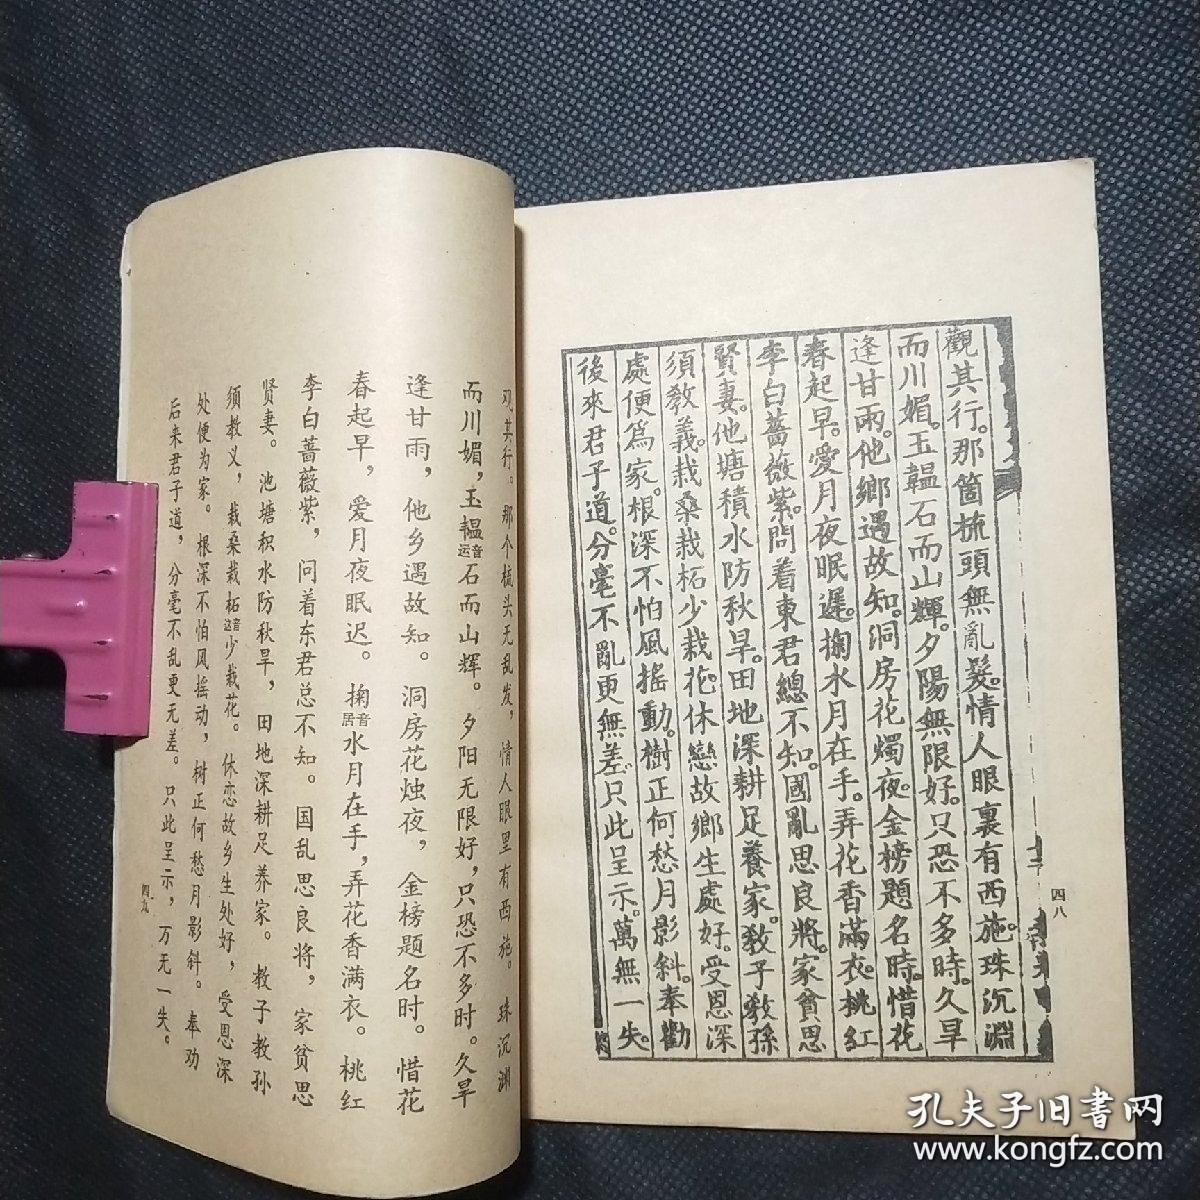 觀其行。那箇梳頭無亂髮。情人眼裏有西施。珠沉淵
而川媚。玉韞石而山輝。夕陽無限好。只恐不多時。久旱
逢甘雨。他鄉遇故知。洞房花燭夜。金榜題名時。惜花
春起早。愛月夜眠遲。掬水月在手。弄花香滿衣。桃紅
李白薔薇紫。問着東君總不知。國亂思良將。家貧思
賢妻。他塘積水防秋旱。田地深耕足養家。教子教孫
須教義。栽桑栽柘少栽花。休戀故鄉生處好。受恩深
處便爲家。根深不怕風搖動。樹正何愁月影斜。奉勸
後來君子道。分毫不亂更無差。只此呈示。萬無一失。
四八
观其行。那个梳头无乱发，情人眼里有西施。珠沉渊
而川媚，玉韫音运石而山辉。夕阳无限好，只恐不多时。久旱
逢甘雨，他乡遇故知。洞房花烛夜，金榜题名时。惜花
春起早，爱月夜眠迟。掬音居水月在手，弄花香满衣。桃红
李白蔷薇紫，问着东君总不知。国乱思良将，家贫思
贤妻。池塘积水防秋旱，田地深耕足养家。教子教孙
须教义，栽桑栽柘音这少栽花。休恋故乡生处好，受恩深
处便为家。根深不怕风摇动，树正何愁月影斜。奉劝
后来君子道，分毫不乱更无差。只此呈示，万无一失。
四九
孔夫子旧书网
www.kongfz.com